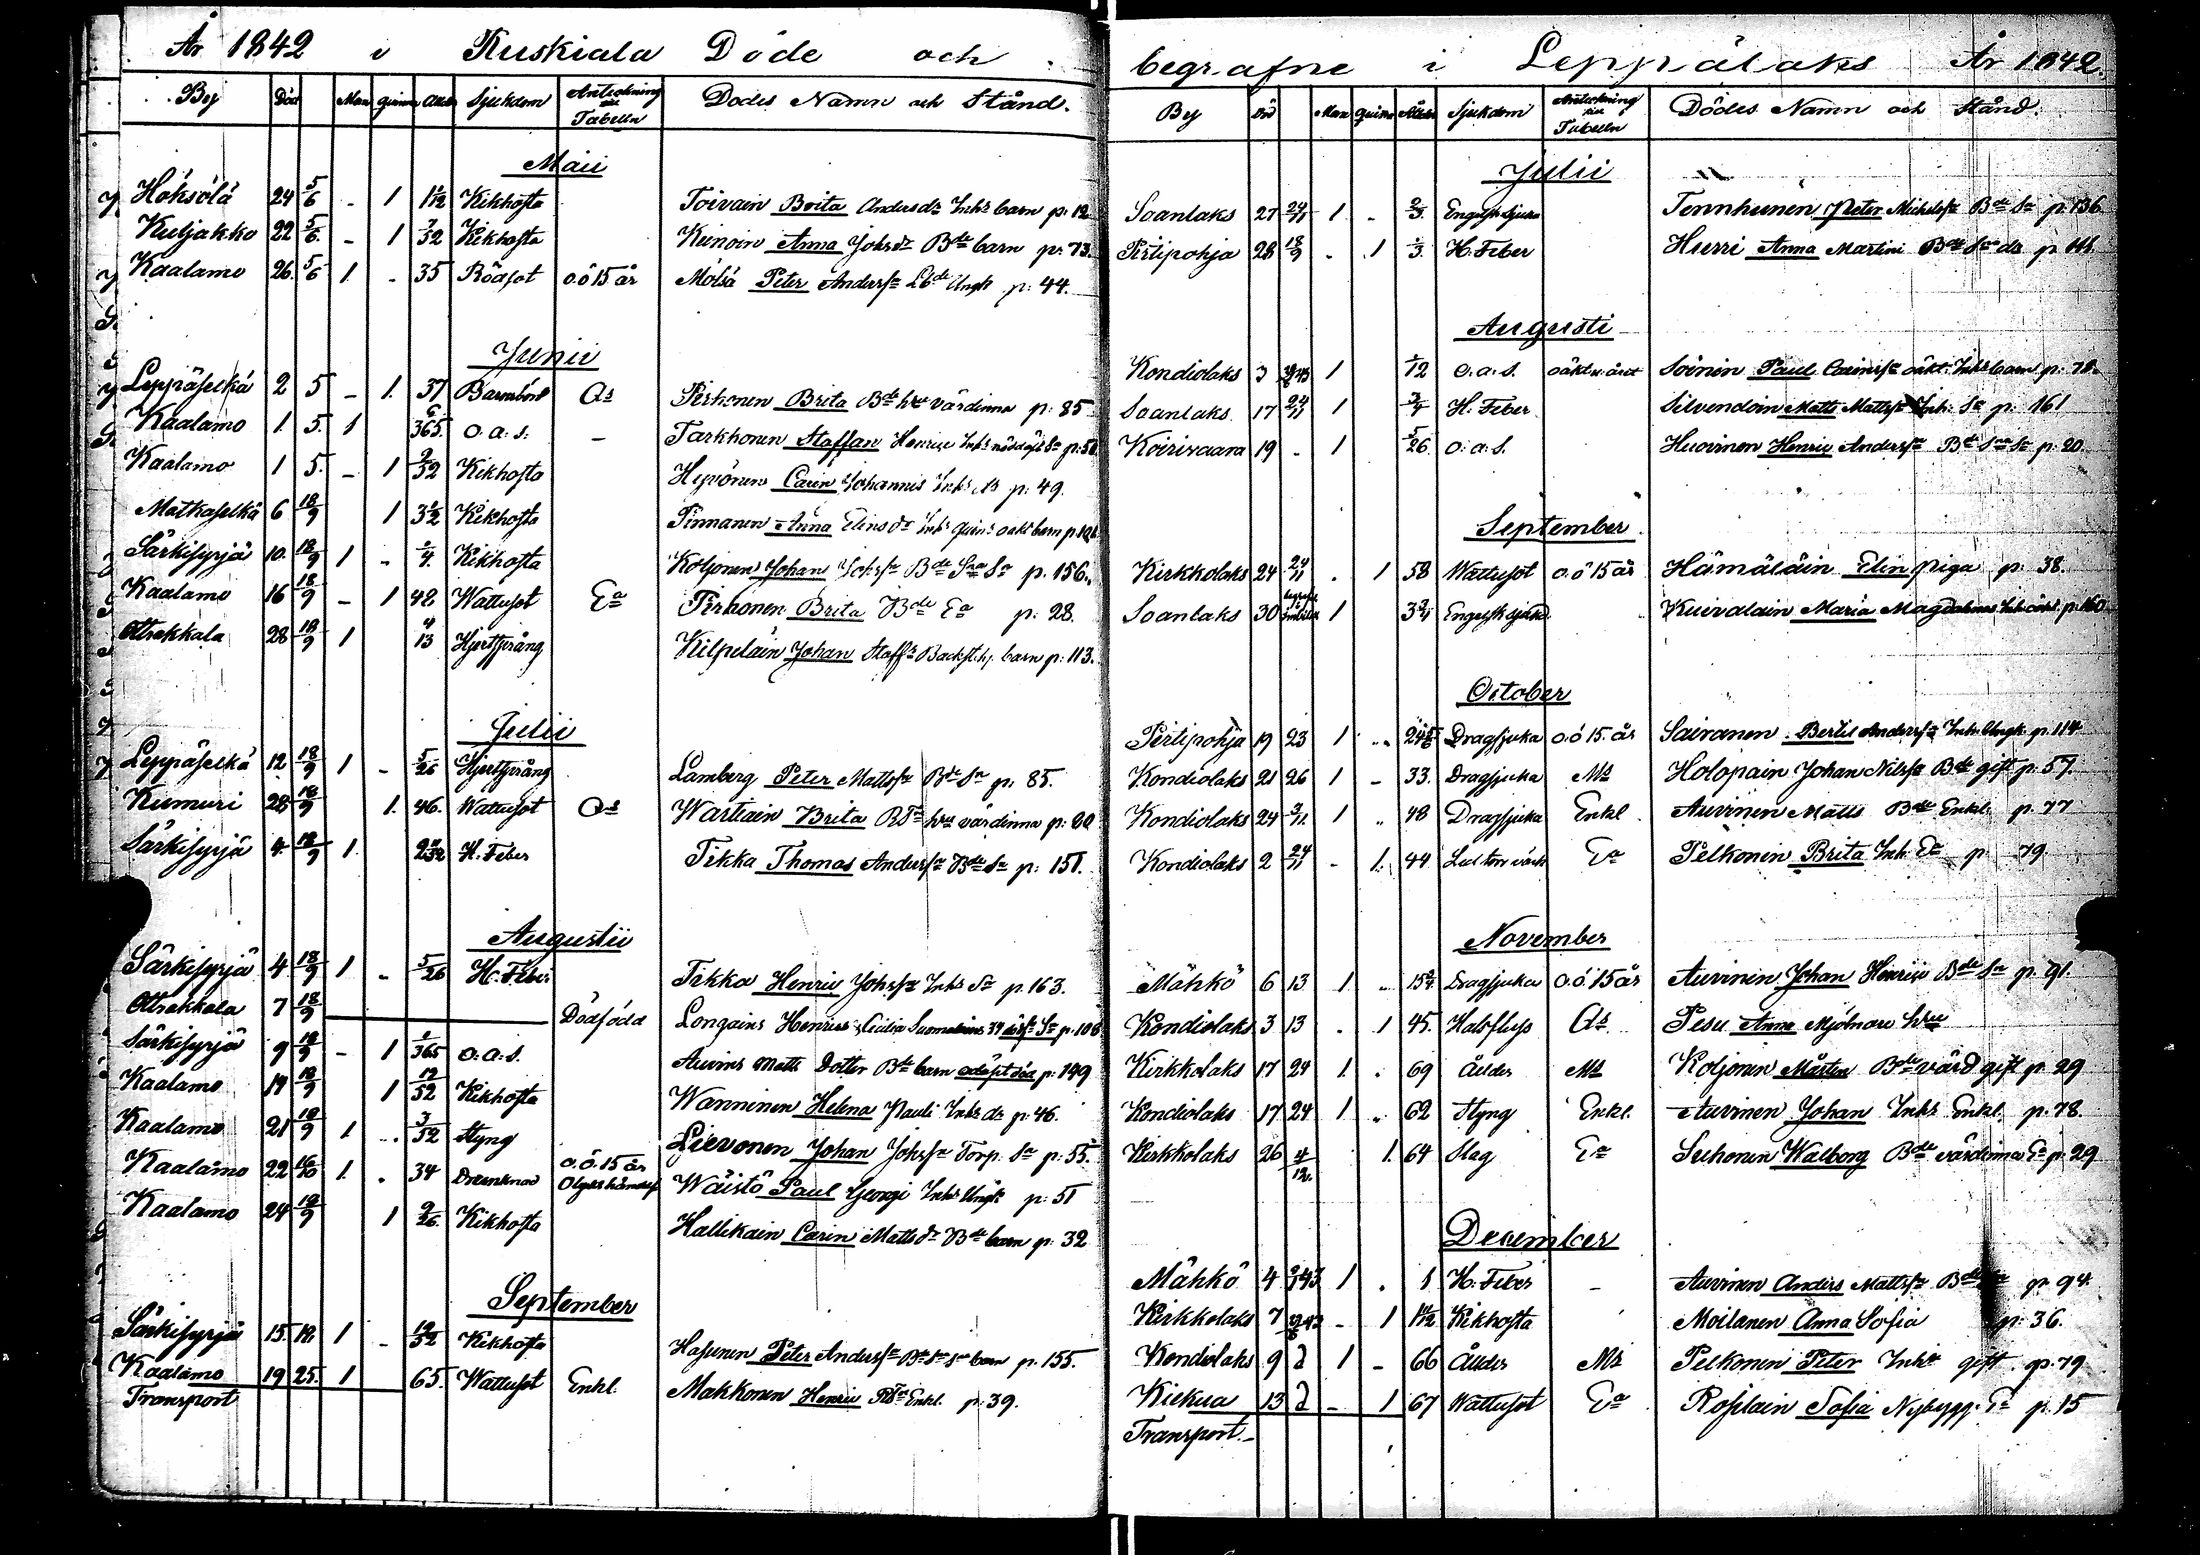 År 1842 i Kuskiala Döde och
By Död Man Quinn Ålder Sjukdom Anteckning till Tabelln Dödes Namn och Stånd.
Maii
Höksölä 24 5/6 - 1 1 1/12 Kikhosta Toivain Brita Andersdr Inhs barn p: 12
Kuljakko 22 5/6 - 1 7/52 Kikhosta Keinoin Anna Johsdr Bde barn p: 73.
Kaalamo 26. 5/6 1. - 35 Rödsot o.ö 15 år Mölsä Peter Andersn Lbde Ungk p: 44.
Junii
Leppäselkä 2 5 - 1. 37 Barnsbörd As Pirhonen Brita Bde hru värdinna p: 85
Kaalamo 1. 5. 1 6/365. o. a: s: - Tarkhonen Staffan Henrici Inhs nöddöpt Sn p: 50
Kaalamo 1 5. - 1 2/52 Kikhosta Hyvönen Carin Johannis Inhs dr p: 49.
Matkaselkä 6 18/9 1 3 1/2 Kikhosta Pinnanen Anna Elinsdr Inhs Quins oäkt barn p. 101
Särkisyrjä 10. 18/9 1 - 1/4. Kikhosta Koljonen Johan Johssn Bde Sna Sn p. 156.
Kaalamo 16 18/9 - 1 42 Wattusot Ea Pirhonen Brita Bde Ea p: 28.
Otrakkala 28 18/9 1 4/13 Hjertsprång Kilpeläin Johan Staffsn Backst.hj. barn p: 113.
Julii
Leppäselkä 12 18/9 1 - 5/26 Hjertsprång Lamberg Peter Mattssn Bde Sn p: 85.
Kumuri 28 18/9 1. 46. Wattusot As Wartiain Brita hru värdinna p: 80
Särkisyrjä 4. 18/9 1. H. Feber Tikka Thomas Anderssn Bde Sn p: 151.
Augustii
Särkisyrjä 4 18/9 1 - 5/26 H: Feber Tikka Henric Johssn Inhs Sn p. 163.
Otrakkala 7 18/9 Dödfödd Longains Henrics & Cecilia Suomalains 39 Sn p. 108
Särkisyrjä 9 18/9 - 1 1/365 o. a. s. Auvins Matts Dotter Bde barn p: 149
Kaalamo 14 18/9 1 12/52 Kikhosta Wanninen Helena Pauli Inhs dr p: 46.
Kaalamo 21 18/9 1 - 3/52 Styng Lievonen Johan Johssn Torp. Sn p: 55.
Kaalamo 22 16/10 1. - 34 Drunknad o. ö. 15 år Olyckshändelse Wäistö Paul Georgi Inhs Ungk p: 51
Kaalamo 24 18/9 1 9/26. Kikhosta Hallikain Carin Mattsdr Bde barn p: 32
September
Särkisyrjä 15. 18. 1 - 12/52 Kikhosta Hasunen Peter Anderssn Bde Sns Sn barn p. 155.
Kaalamo 19 25. 1 65. Wattusot Enkl. Makkonen Henric Enkl. p: 39.
Transport
begrafne i Leppälaks År 1842.
By Död Man Quinn Ålder Sjukdom Anteckning till Tabelln Dödes Namn och Stånd.
Julii
Soanlaks 27 24/11 1 - 2/3. Engelsk sjuka Tennhunen Peter Michelssn Bde Sn p. 136
Pirtipohja 28 18/9 - 1 H. Feber Hurri Anna Martini Bde Sns dr p 144.
Augusti
Kondiolaks 3 1 1/12 o. a. s. oäkta u. året Soinin Paul Carinssn oäkt. Inhs barn p: 78.
Soanlaks 17 24/11 1 3/4 H. Feber Silvendoin Matts Mattssn Inh: Sn p: 161
Koirivaara 19 - 1 5/26. o: a: s. Huovinen Henric Anderssn Bde Sns Sn p: 20.
September
Kirkkolaks 24 24/11 - 1 58 Wattusot o. ö 15 år Hämäläin Elin piga p: 38.
Soanlaks 30 1 3 3/4 Engelsk sjuka Kuivalain Maria Magdalenas p. 160
October
Pirtipohja 19 23 1 - Dragsjuka o.ö 15. år Sairanen Bertil Anderssn Inhs Ungk. p. 114
Kondiolaks 21 26 1 - 33. Dragsjuka Ms Holopain Johan Nilssn Bde gift p. 57.
Kondiolaks 24 3/11. 1 - 48 Dragsjuka Enkl Auvinen Matts Bde Enkl. p. 77
Kondiolaks 2 24/11 - 1. 44 Led torr värk Ea Pelkonin Brita Inh. Ea p 79.
November
Mähkö 6 13 1. - 15 3/4. Dragsjuka o. ö. 15 år Auvinen Johan Henrici Bde Sn p. 91.
Kondiolaks 3 13 - 1 45. Halsfluss As Pesu Anna Mjölnare hru
Kirkkolaks 17 24 1. - 69 Ålder Ms Koljonen Mårten Bde värd gift p. 29
Kondiolaks 17 24 1 - 62 Styng Enkl. Auvinen Johan Inhs Enkl. p. 78
Kirkkolaks 26 4/12. 1. 64 Slag Ea Suhonen Walborg Bde värdinna Ea p. 29
December
Mähkö 4 1 - 1 H: Feber - Auvinen Anders Mattssn Bde p. 94.
Kirkkolaks 7 - 1 Kikhosta Moilanen Anna Sofia p: 36.
Kondiolaks 9 d 1 - 66 Ålder Ms Pelkonen Peter Inhs gift. p. 79
Kiekua 13 d - 1 67 Wattusot Ea Rosilain Sofia Nybygg. Ea p. 15
Transport.-